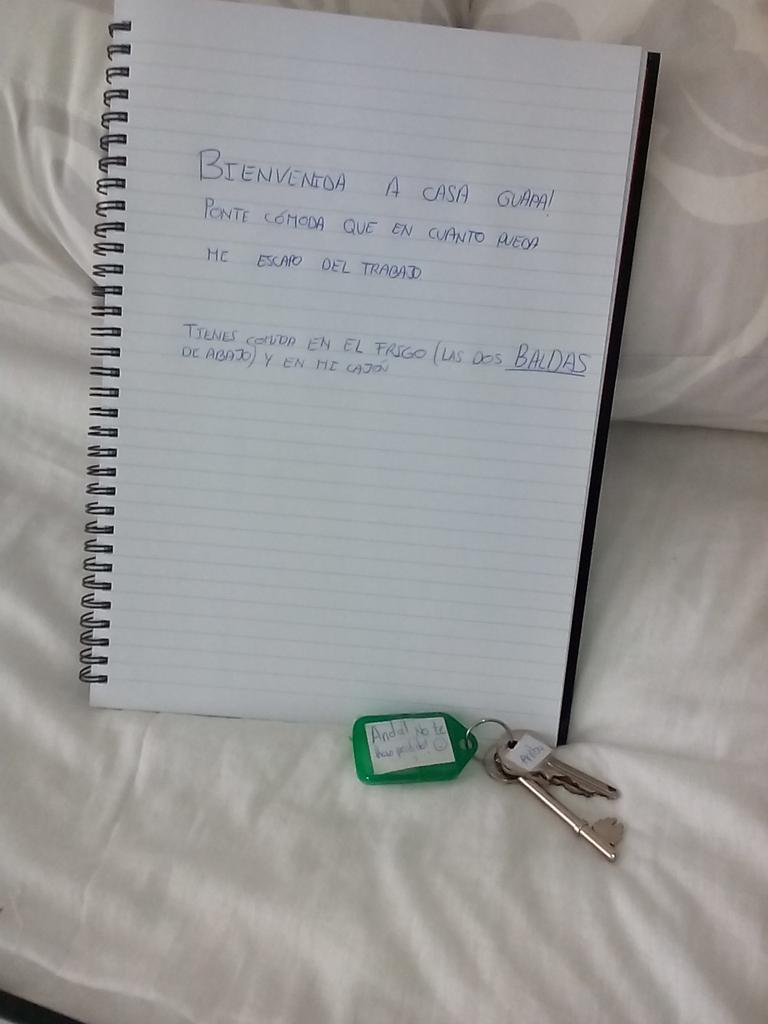 BIENVENIDA A CASA GUAPA!
PONTE CÓMODA QUE EN CUANTO PUEDA
ME ESCAPO DEL TRABAJO
TIENES COMIDA EN EL FRIGO (LAS DOS BALDAS
DE ABAJO) Y EN MI CAJÓN
Anda! No te